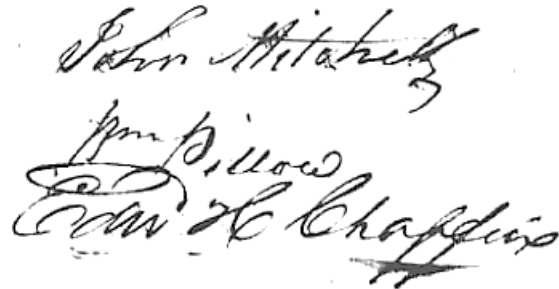 John Mitchell
Wm Pillow
Edw H Chappins